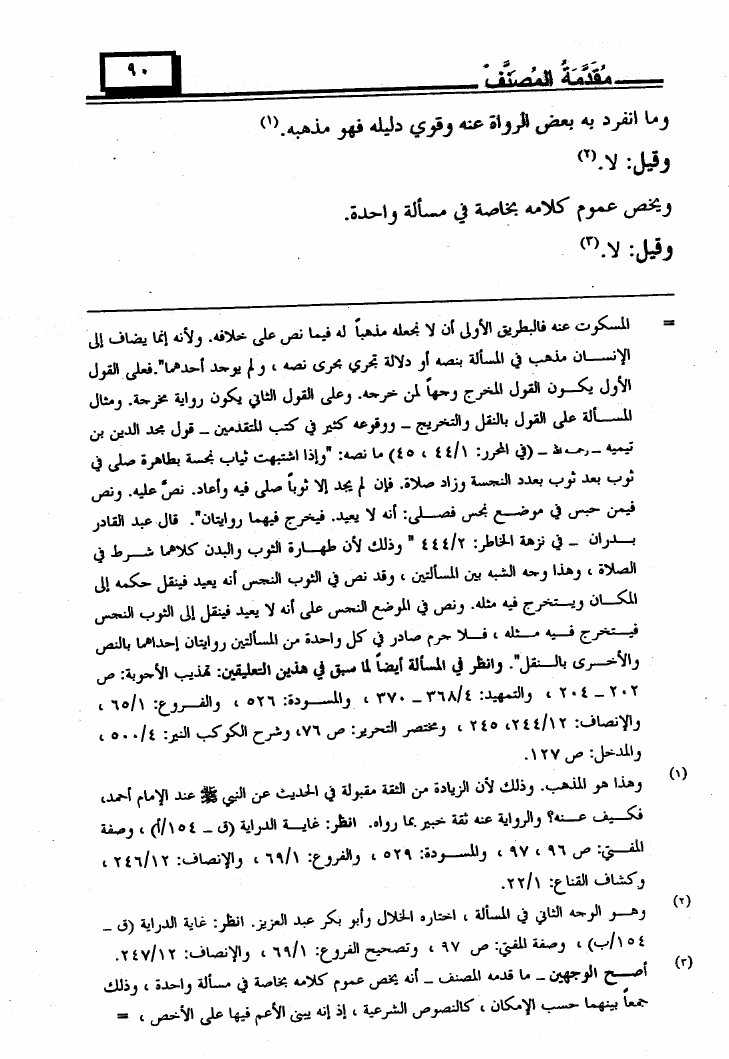 مُقَدَّمَةُ المُصَنَّفْ
٩٠
وما انفرد به بعض الرواة عنه وقوي دليله فهو مذهبه.(١)
وقيل: لا.(٢)
ويخص عموم كلامه بخاصة في مسألة واحدة.
وقيل: لا.(٣)
= المسكوت عنه فالبطريق الأولى أن لا نجعله مذهباً له فيما نص على خلافه. ولأنه إنما يضاف إلى
الإنسـان مذهب في المسألة بنصه أو دلالة تجري مجرى نصه ، ولم يوجد أحدهما". فعلى القول
الأول يكـون القول المخرج وجهاً لمن خرجه. وعلى القول الثاني يكون رواية مخرجة. ومثال
المسـألة على القول بالنقل والتخريج ــ ووقوعه كثير في كتب المتقدمين ــ قول مجد الدين بن
تيميه ــ رحمه الله ــ (في المحرر: ٤٤/١ ، ٤٥) ما نصه: "وإذا اشتبهت ثياب نجسة بطاهرة صلى في
ثوب بعد ثوب بعدد النجسة وزاد صلاة. فإن لم يجد إلا ثوباً صلى فيه وأعاد. نصَّ عليه. ونص
فيمن حبس في موضـع نجس فصـلى: أنه لا يعيد. فيخرج فيهما روايتان". قال عبد القادر
بـدران ــ في نزهة الخاطر: ٤٤٤/٢ " وذلك لأن طهـارة الثوب والبدن كلاهما شـرط في
الصلاة ، وهذا وجه الشبه بين المسألتين ، وقد نص في الثوب النجس أنه يعيد فينقل حكمه إلى
المكـان ويسـتخرج فيه مثله. ونص في الموضع النجس على أنه لا يعيد فينقل إلى الثوب النجس
فيـتخرج فـيه مـثله ، فـلا جرم صادر في كل واحدة من المسألتين روايتان إحداهما بالنص
والأخـرى بالـنقل". وانظر في المسألة أيضاً لما سبق في هذين التعليقين: تهذيب الأجوبة: ص
٢٠٢ ــ ٢٠٤ ، والتمهيد: ٣٦٨/٤ ــ ٣٧٠ ، والمسـودة: ٥٢٦ ، والفـروع: ٦٥/١ ،
والإنصاف: ٢٤٤/١٢، ٢٤٥ ، ومختصر التحرير: ص ٧٦، وشرح الكوكب المنير: ٥٠٠/٤ ،
والمدخل: ص ١٢٧.
(١) وهذا هو المذهب. وذلك لأن الزيادة من الثقة مقبولة في الحديث عن النبي ﷺ عند الإمام أحمد،
فكـيف عـنه؟ والرواية عنه ثقة خبير بما رواه. انظر: غايـة الدراية (ق ــ ١٥٤/أ) ، وصفة
المفـتي: ص ٩٦ ، ٩٧ ، والمسـودة: ٥٢٩ ، والفروع: ٦٩/١ ، والإنصاف: ٢٤٦/١٢ ،
وكشاف القناع: ٢٢/١.
(٢) وهـو الوجه الثاني في المسألة ، اختاره الخلال وأبو بكر عبد العزيز. انظر: غاية الدراية (ق ــ
١٥٤/ب) ، وصفة المفتي: ص ٩٧ ، وتصحيح الفروع: ٦٩/١ ، والإنصاف: ٢٤٧/١٢.
(٣) أصـح الوجهين ــ ما قدمه المصنف ــ أنه يخص عموم كلامه بخاصة في مسألة واحدة ، وذلك
جمعاً بينهما حسب الإمكان ، كالنصوص الشرعية ، إذ إنه يبنى الأعم فيها على الأخص ، =